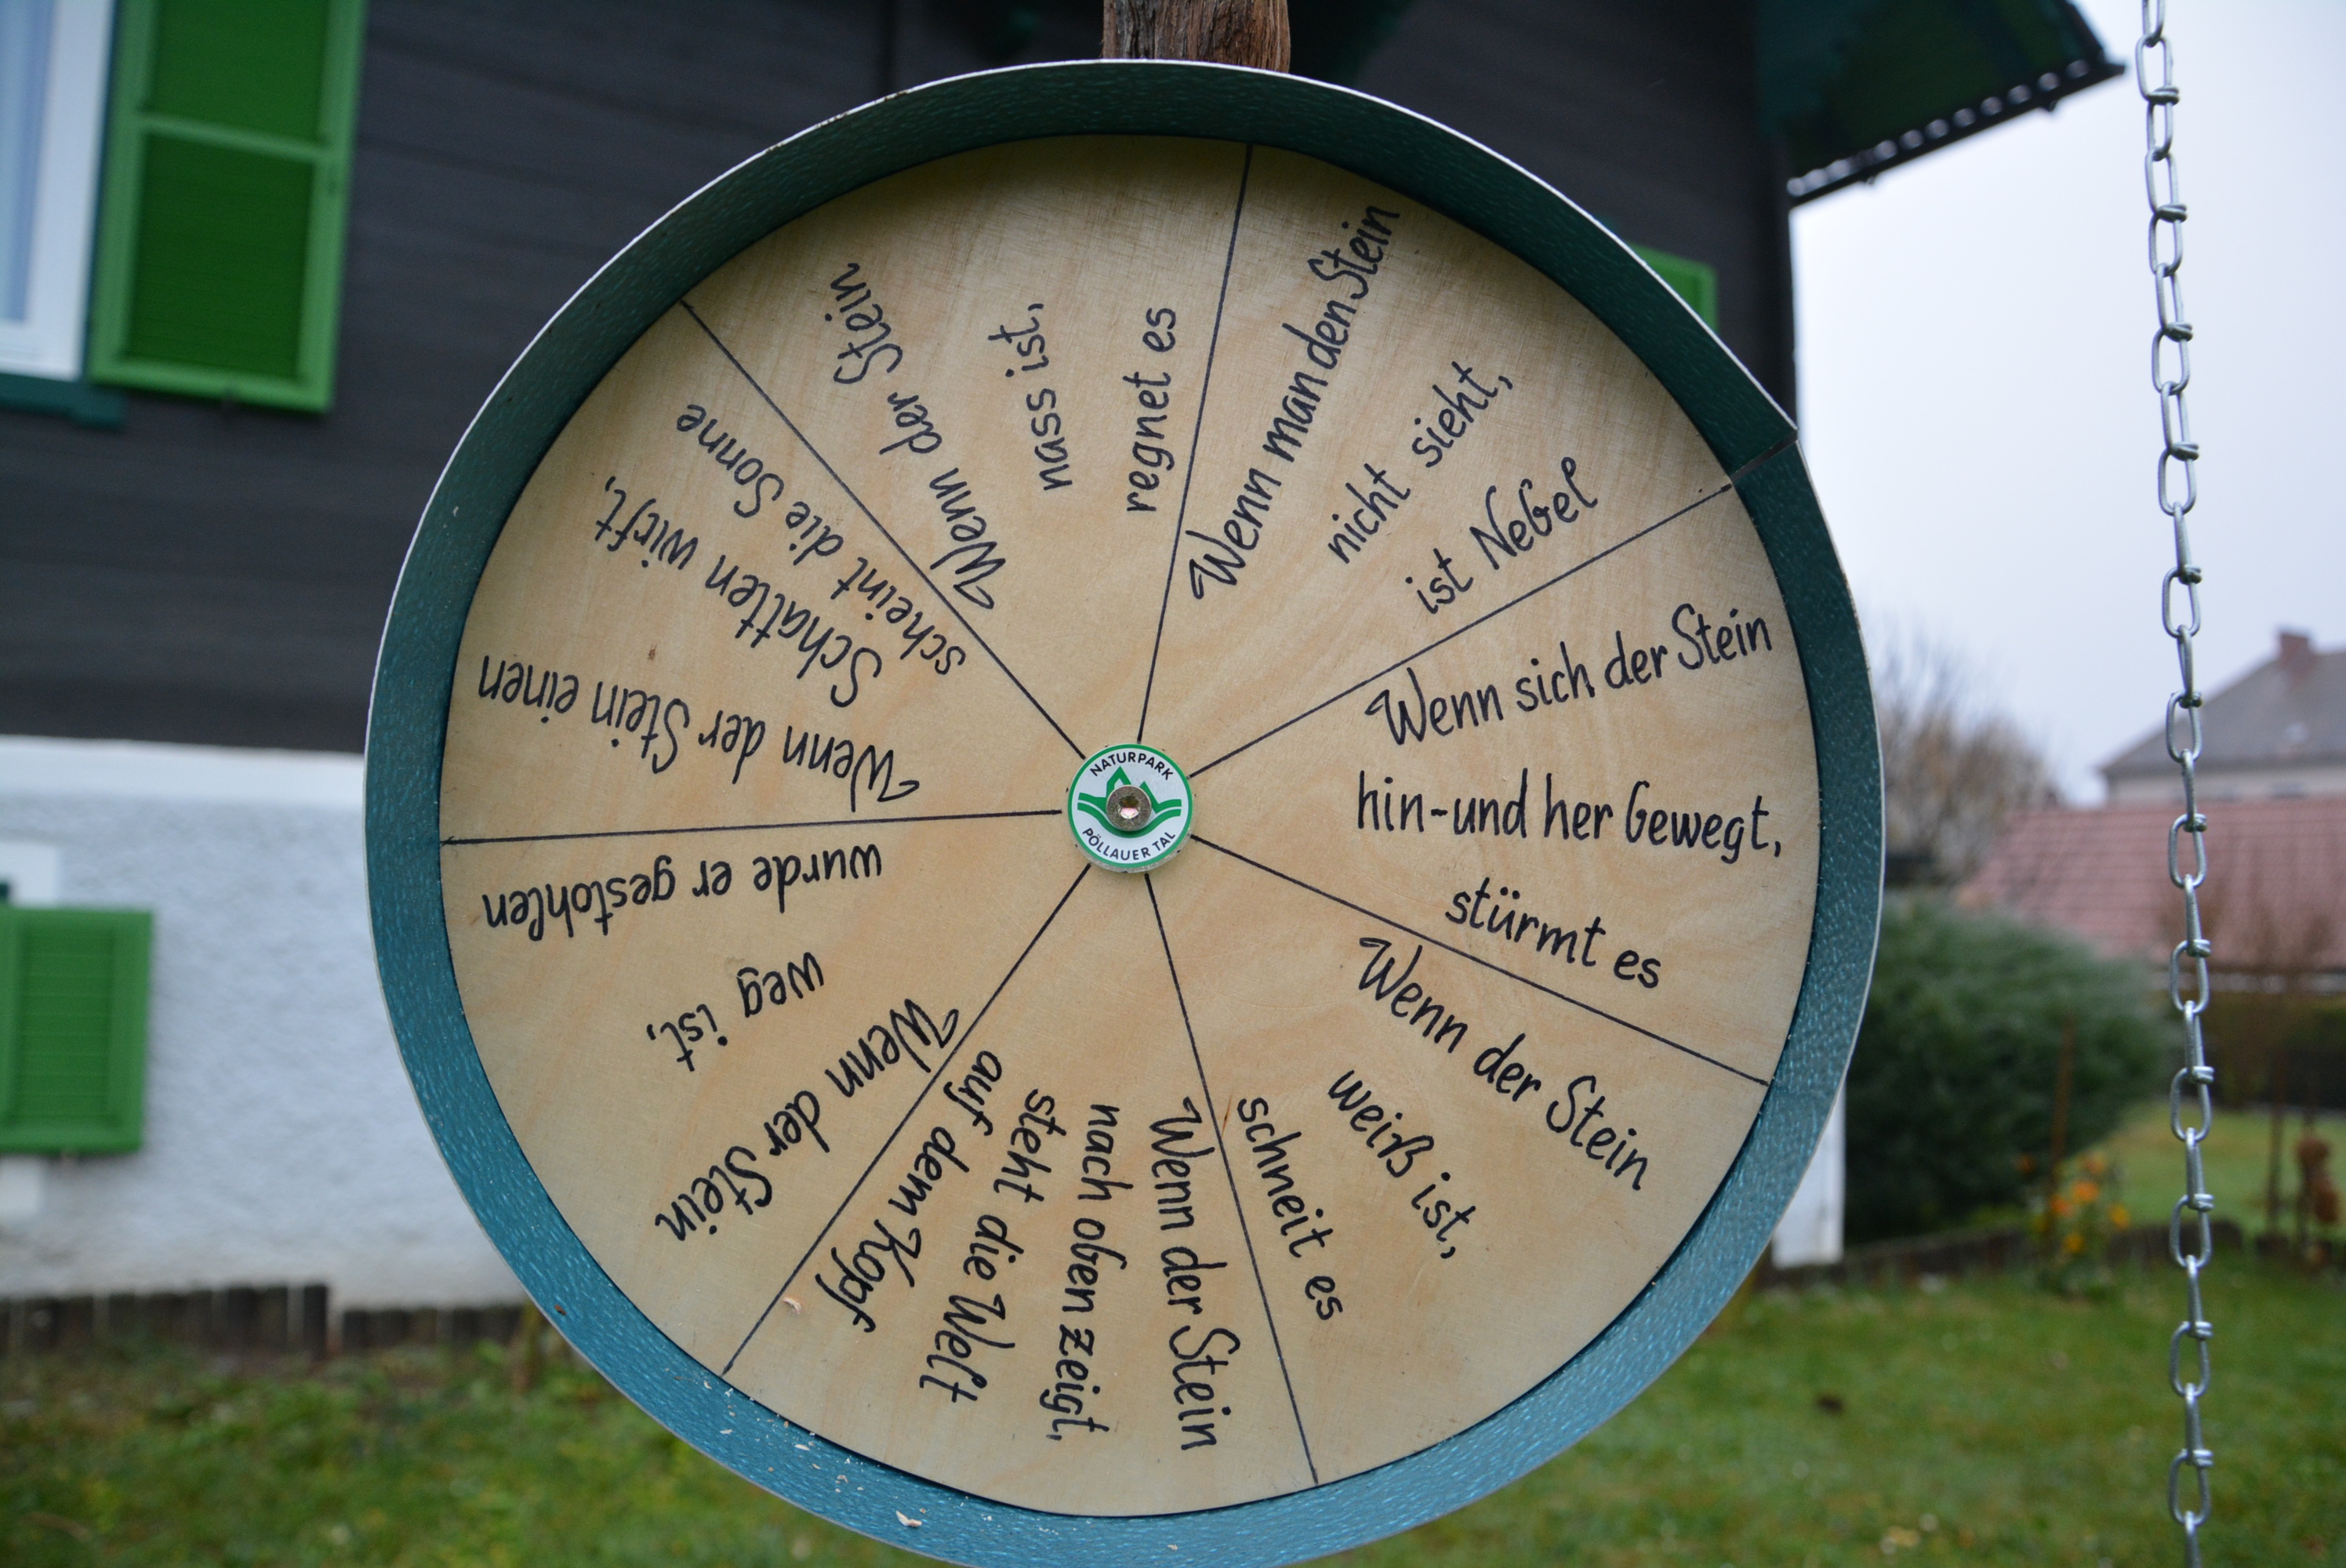 Wenn der Stein
nass ist,
regnet es
Wenn man den Stein
nicht sieht,
ist Nebel
Wenn sich der Stein
hin-und her bewegt,
stürmt es
Wenn der Stein
weiß ist,
schneit es
Wenn der Stein
nach oben zeigt,
steht die Welt
auf dem Kopf
Wenn der Stein
weg ist,
wurde er gestohlen
Wenn der Stein einen
Schatten wirft,
scheint die Sonne
NATURPARK
PÖLLAUER TAL